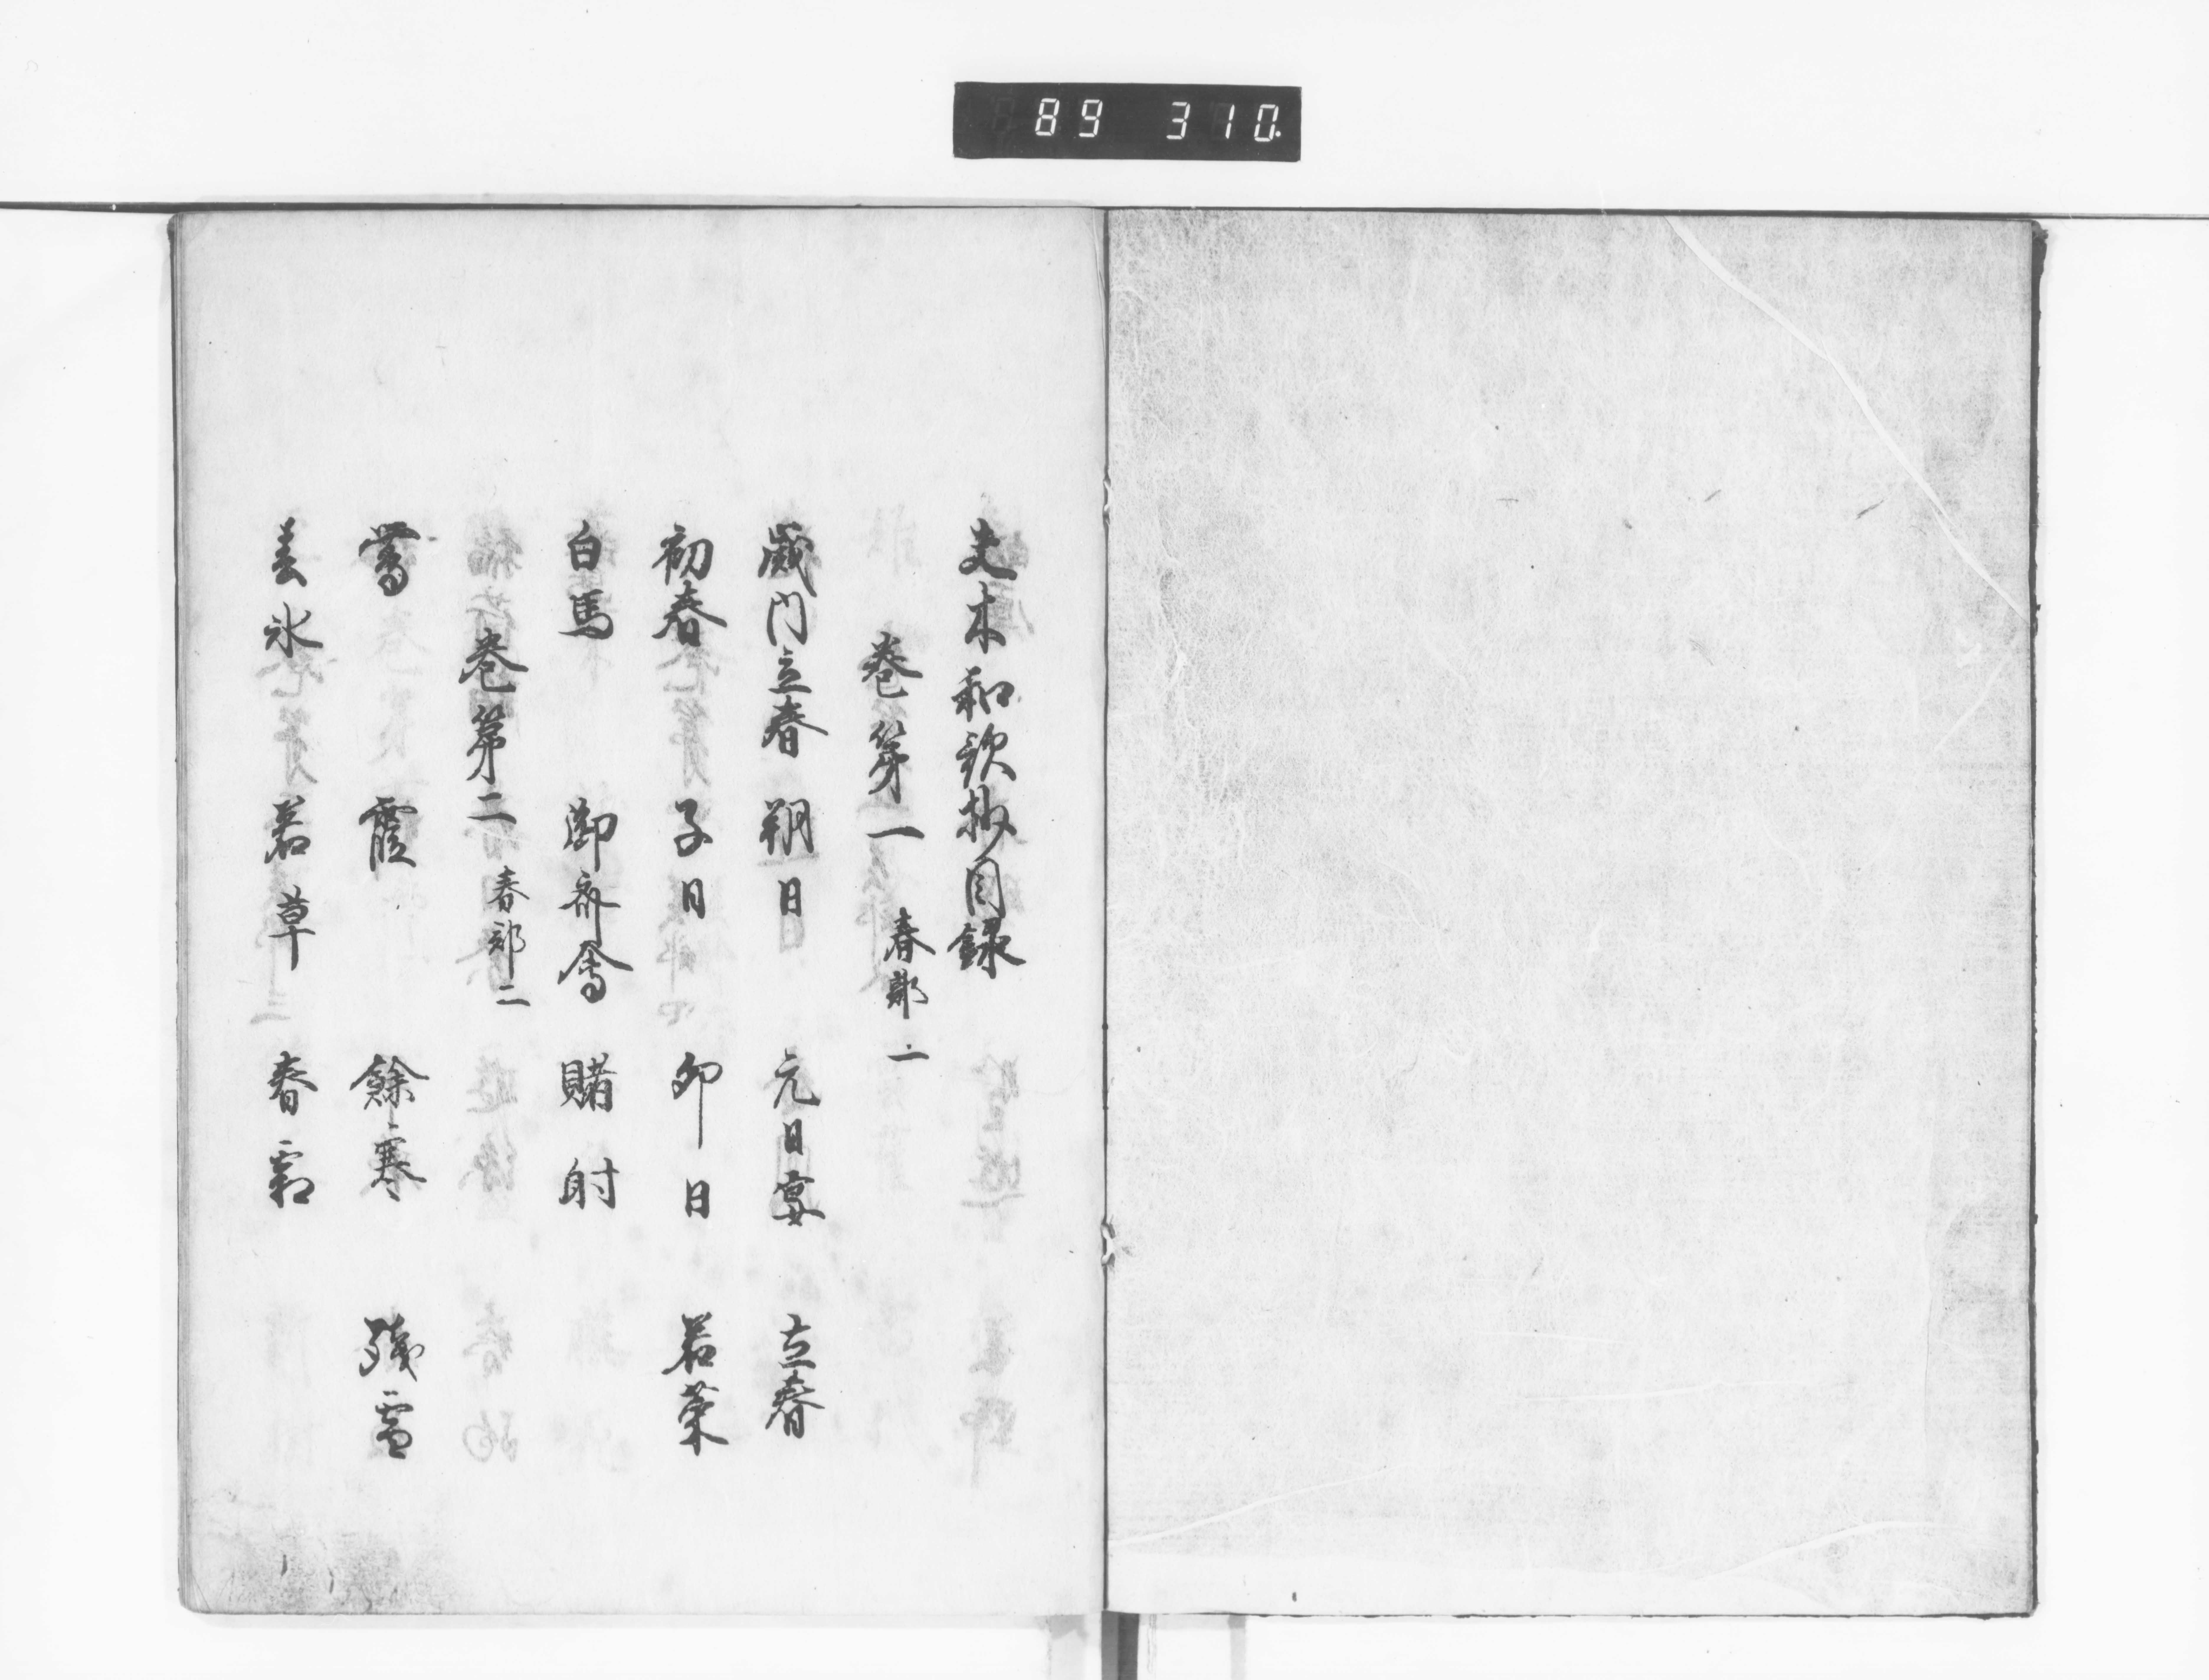 89 310.
夫木和歌抄目録
巻第一 春部一
歳内立春 朔日 元日宴 立春
初春 子日 卯日 若菜
白馬 御斎會 賭射
巻第二 春部二
鶯 霞 餘寒 残雪
春氷 若草 春霜